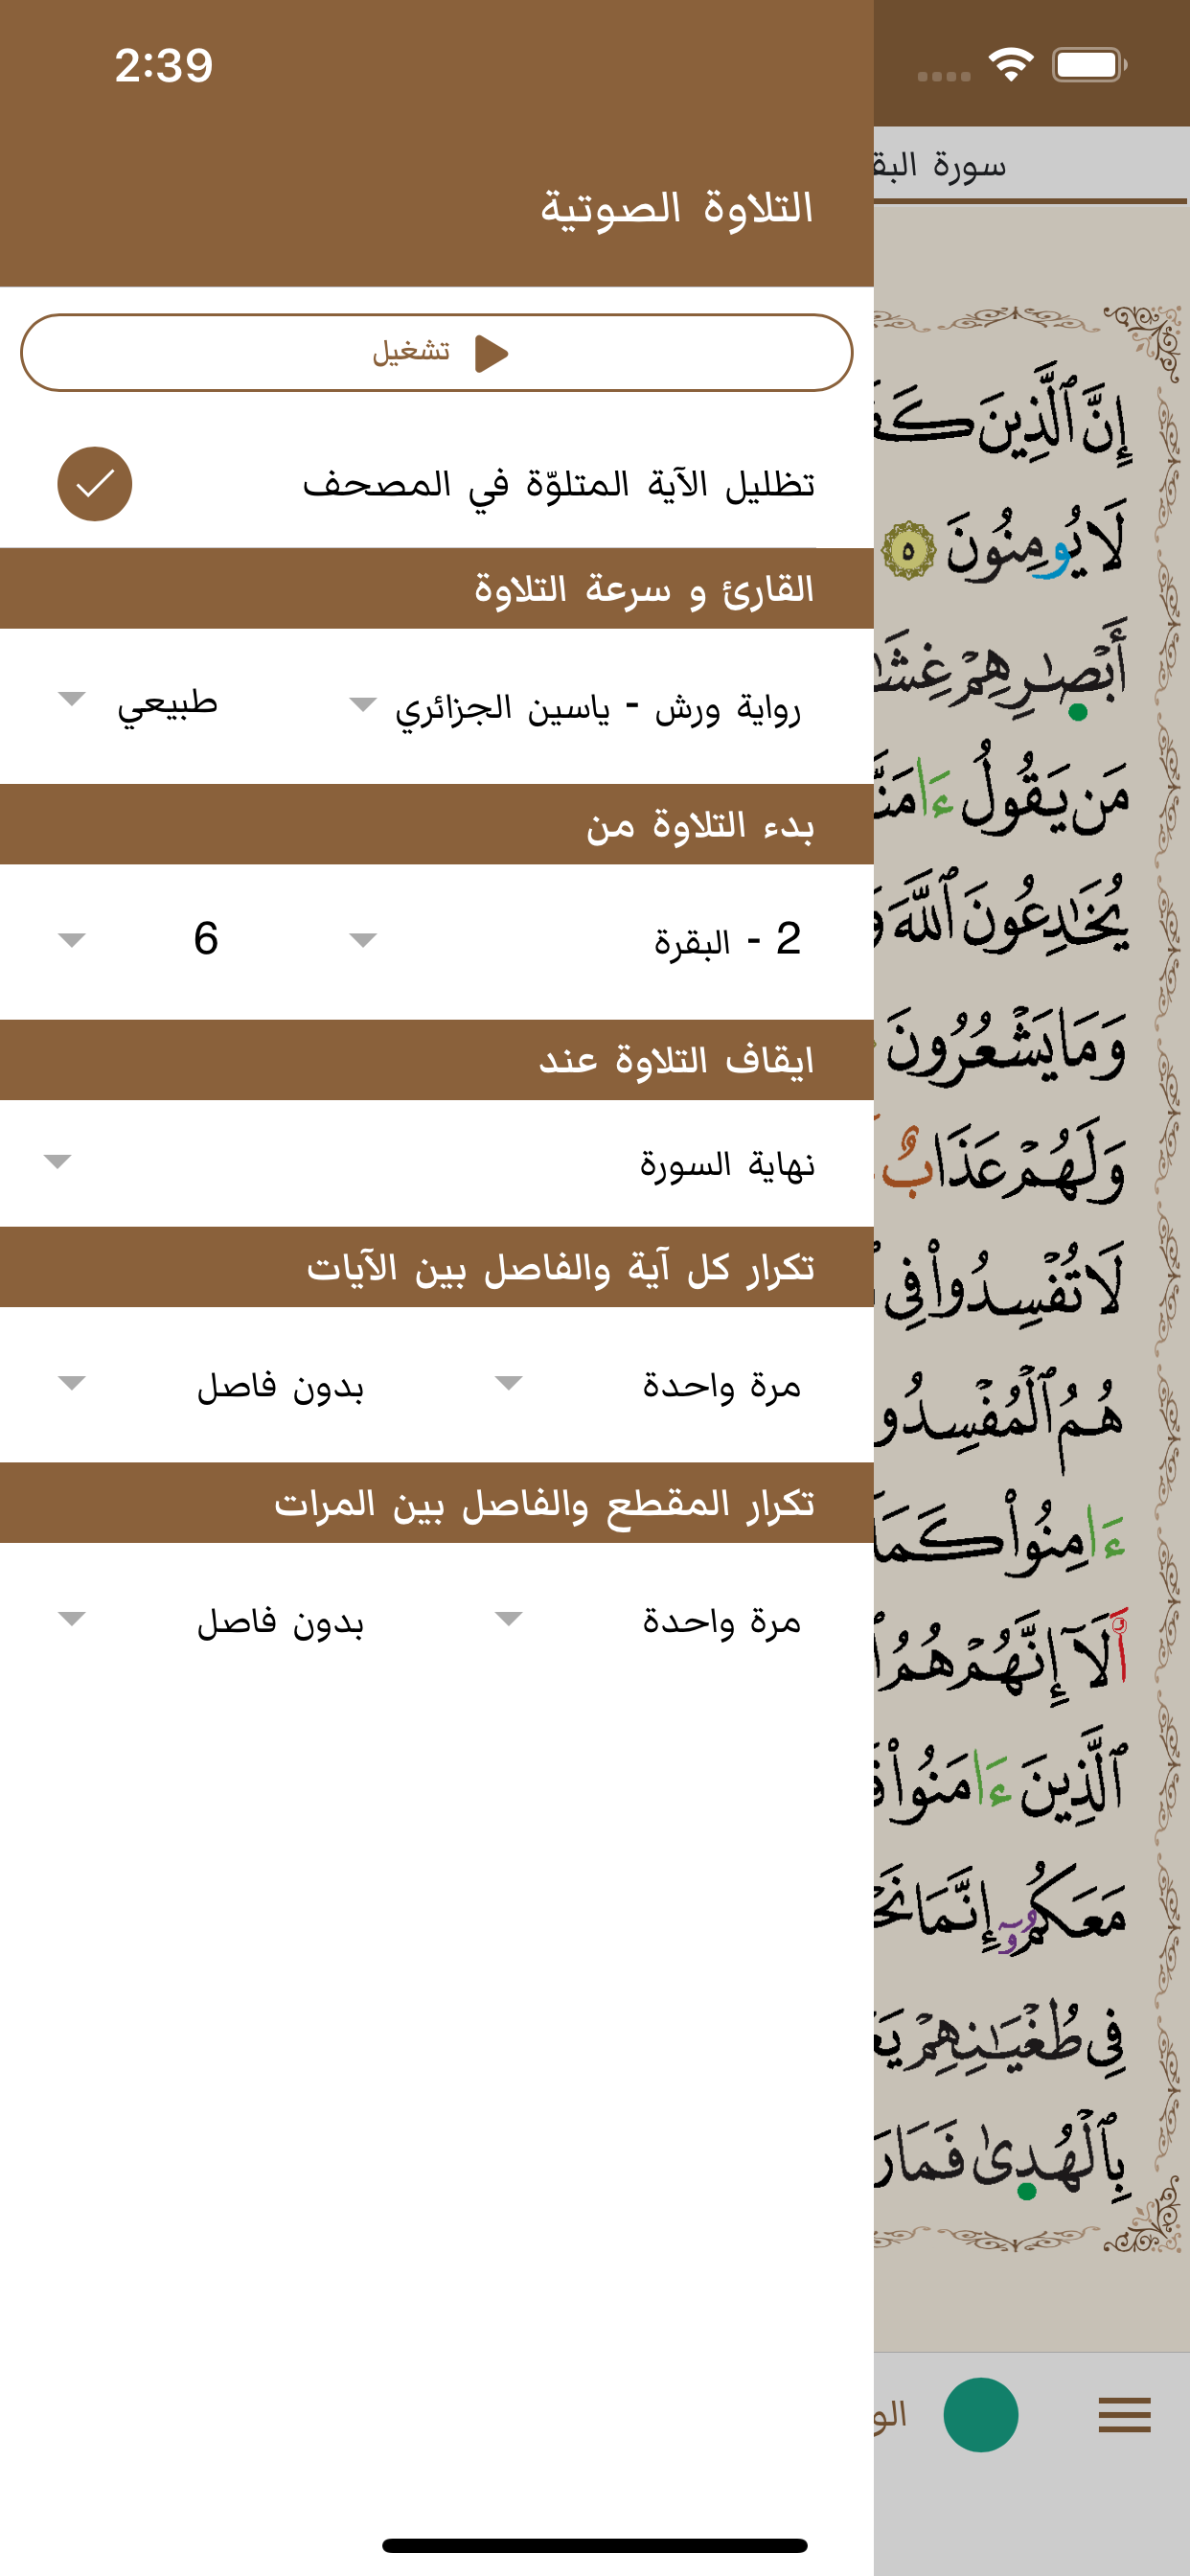 2:39
التلاوة الصوتية
تشغيل
تظليل الآية المتلوّة في المصحف
القارئ و سرعة التلاوة
رواية ورش - ياسين الجزائري
طبيعي
بدء التلاوة من
2 - البقرة
6
ايقاف التلاوة عند
نهاية السورة
تكرار كل آية والفاصل بين الآيات
مرة واحدة
بدون فاصل
تكرار المقطع والفاصل بين المرات
مرة واحدة
بدون فاصل
سورة البق
إِنَّ اَ۬لذِينَ كَفَ
لَا يُومِنُونَ ٥
أَبْصٰ۪رِهِمْ غِشَٰ
مَنْ يَّقُولُ ءَامَنَّ
يُخَٰدِعُونَ اَ۬للَّهَ وَ
وَمَا يَشْعُرُونَ
وَلَهُمْ عَذَابٌ
لَا تُفْسِدُواْ فِے
هُمُ اُ۬لْمُفْسِدُو
ءَامِنُواْ كَمَا
أَلَآ إِنَّهُمْ هُمُ
اَ۬لذِينَ ءَامَنُواْ قَ
مَعَكُمُۥٓ إِنَّمَا نَحْ
فِے طُغْيَٰنِهِمْ يَعْ
بِالْهُد۪يٰ فَمَا رَ
الو